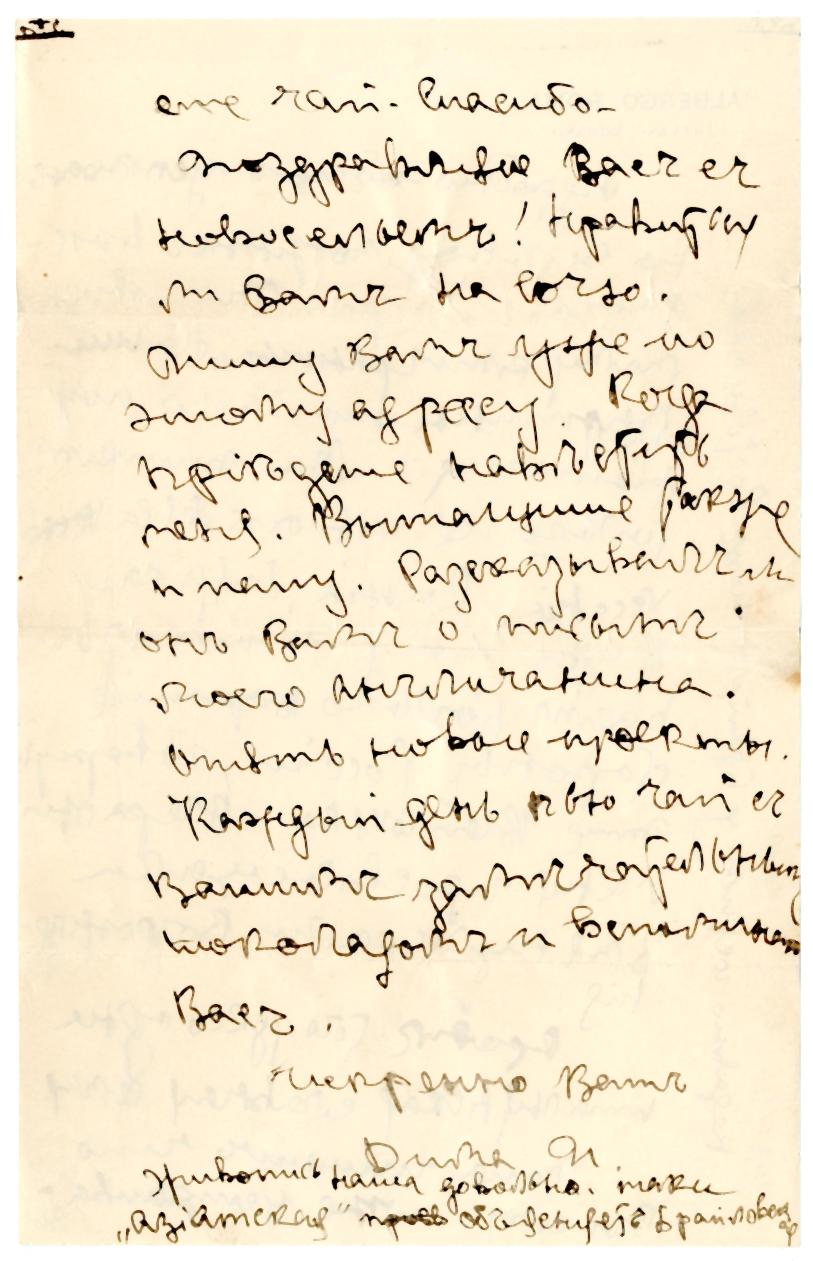 еще чай. Спасибо.
Поздравляю Васъ съ
новосельемъ! Нравится
ли Вамъ на Corso.
Пишу Вамъ уже по
этому адресу. Когда
прiѣдете навѣстить
меня. Вытащите также
и папу. Разсказывалъ ли
онъ Вамъ о
моего Англичанина.
Опять новые проекты.
Каждый день пью чай съ
Вашимъ замѣчательнымъ
шоколадомъ и вспоминаю
Васъ.
Искренно Вашъ
Дима
Живопись наша довольно таки
„азiатская" объясняетъ